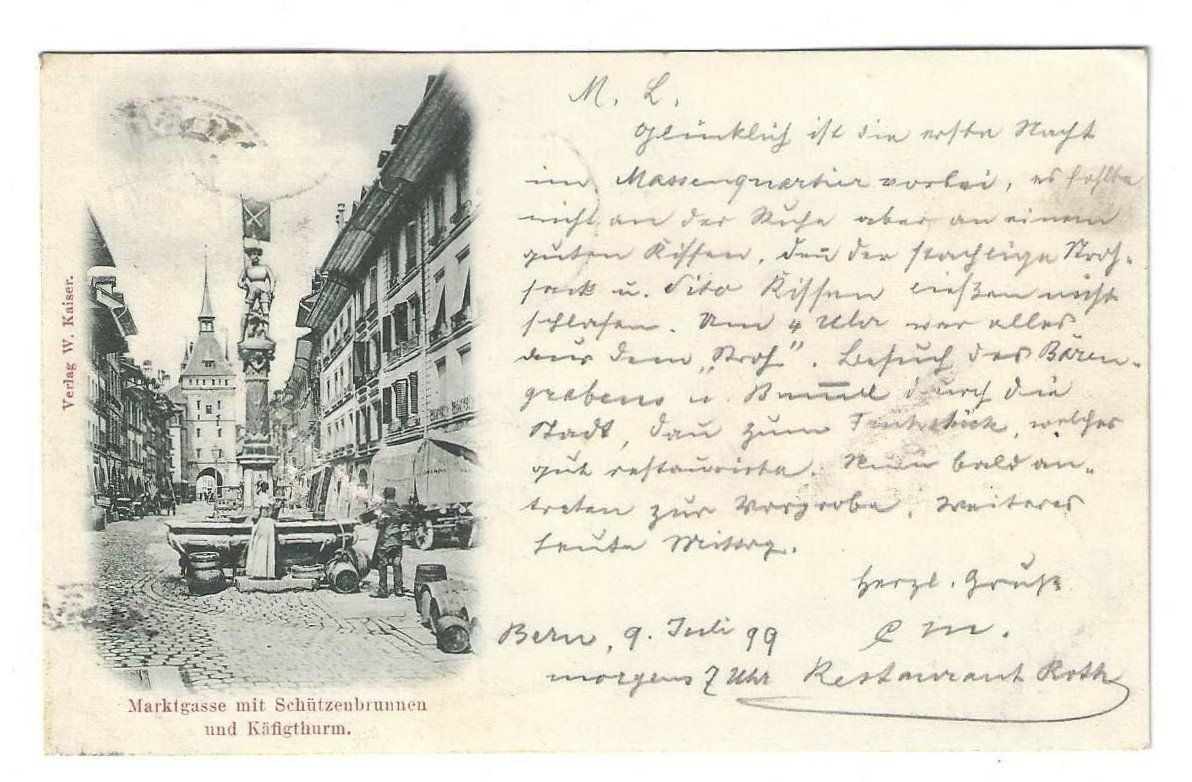 Verlag W. Kaiser.
M. L.
Glücklich ist die erste Nacht
im Massenquartier vorbei, es fehlte
nicht an der Ruhe aber an einem
guten Kissen, den der stachlige Stroh-
sack u. dito Kissen ließen nicht
schlafen. Um 4 Uhr war alles
aus dem „Stroh“. Besuch des Bären-
grabens u. durch die
Stadt, dan zum Frühstück, welches
gut restaurirte. Nun bald an-
treten zur Vorprobe. Weiteres
heute Mittag.
Herzl. Gruß
Bern, 9. Juli 99 C M.
morgens 7 Uhr Restaurant Roth
Marktgasse mit Schützenbrunnen
und Käfigthurm.